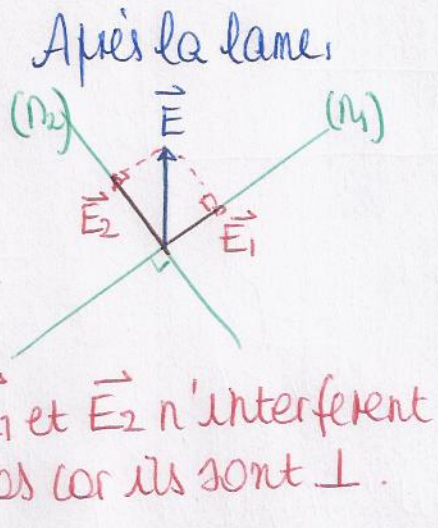 Après la lame.
(n2) E (n1)
E2 E1
1 et E2 n'interferent
as car ils sont ⊥.